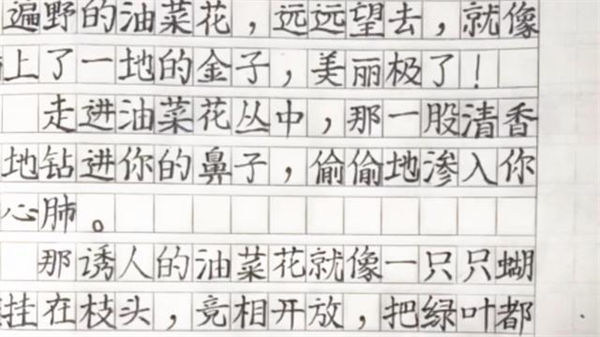 遍野的油菜花，远远望去，就像
上了一地的金子，美丽极了！
走进油菜花丛中，那一股清香
地钻进你的鼻子，偷偷地渗入你
心肺。
那诱人的油菜花就像一只只蝴
挂在枝头，竞相开放，把绿叶都